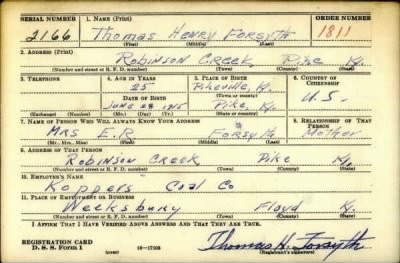 SERIAL NUMBER 1. NAME (Print) ORDER NUMBER
2166 Thomas Henry Forsyth 1811
(First) (Middle) (Last)
2. ADDRESS (Print)
Robinson Creek, Pike Ky.
(Number and street or R. F. D. number) (Town) (County) (State)
3. TELEPHONE 4. AGE IN YEARS 5. PLACE OF BIRTH 6. COUNTRY OF CITIZENSHIP
25 Pikeville, Ky.
(Town or county)
DATE OF BIRTH
June 28 1915 Pike, Ky. U.S.
(Exchange) (Number) (Mo.) (Day) (Yr.) (State or country)
7. NAME OF PERSON WHO WILL ALWAYS KNOW YOUR ADDRESS 8. RELATIONSHIP OF THAT PERSON
Mrs E.R. Forsyth Mother
(Mr., Mrs., Miss) (First) (Middle) (Last)
9. ADDRESS OF THAT PERSON
Robinson Creek Pike Ky.
(Number and street or R. F. D. number) (Town) (County) (State)
10. EMPLOYER'S NAME
Koppers Coal Co
11. PLACE OF EMPLOYMENT OR BUSINESS
Weeksbury Floyd Ky.
(Number and street or R. F. D. number) (Town) (County) (State)
I AFFIRM THAT I HAVE VERIFIED ABOVE ANSWERS AND THAT THEY ARE TRUE.
REGISTRATION CARD
D. S. S. Form 1 (over) 16-17105 Thomas H. Forsyth
(Registrant's signature)